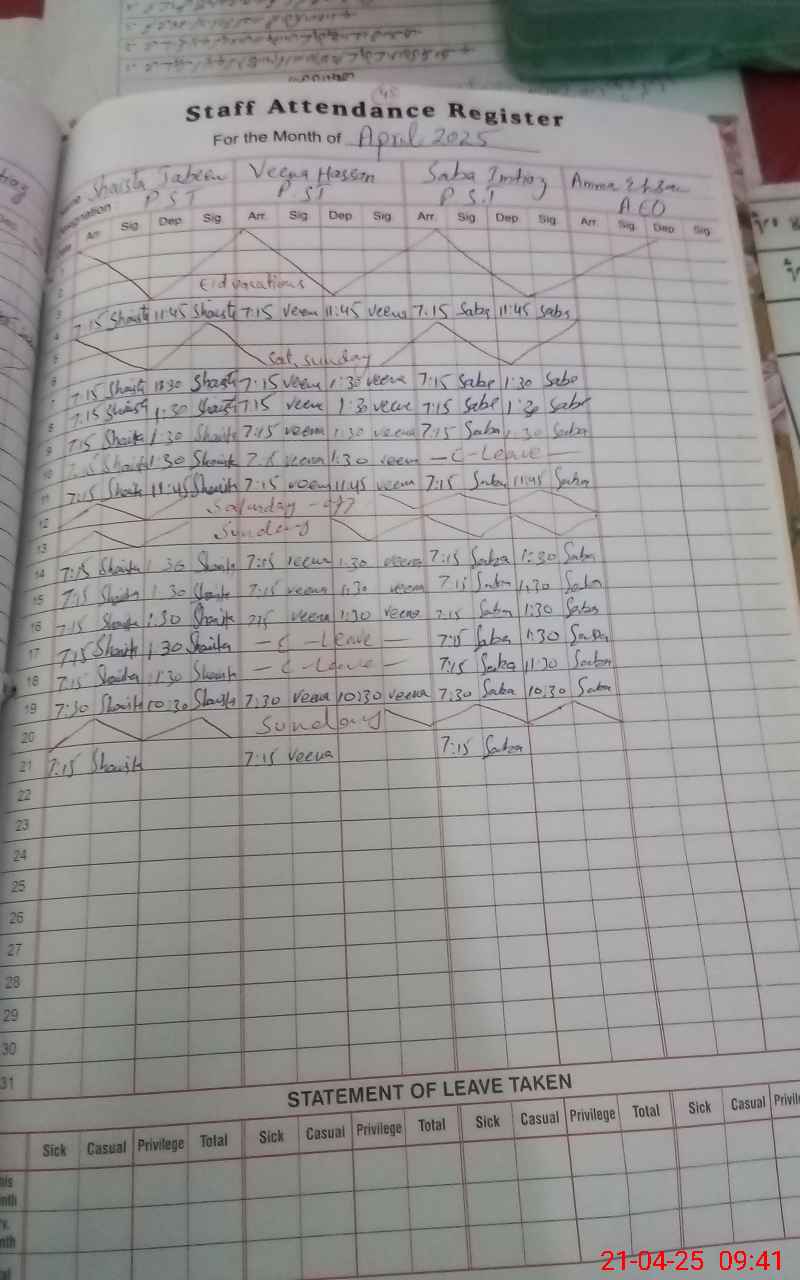 Staff Attendance Register
For the Month of April 2025
Shaista Jabeen Veena Hassan Saba Imtiaz
PST PST P.S.T AEO
Arr. Sig. Dep. Sig. Arr. Sig. Dep. Sig. Arr. Sig. Dep. Sig. Arr. Sig. Dep. Sig.
1
2 Eid vacations
3 7:15 Shaista 11:45 Shaista 7:15 veena 11:45 veena 7:15 Saba 11:45 Saba
4
5 Sat, Sunday
6
7 7:15 Shaista 1:30 Shaista 7:15 veena 1:30 veena 7:15 Saba 1:30 Saba
8 7:15 Shaista 1:30 Shaista 7:15 veena 1:30 veena 7:15 Saba 1:30 Saba
9 7:15 Shaista 1:30 Shaista 7:15 veena 1:30 veena 7:15 Saba 1:30 Saba
10 Shaista 1:30 Shaista veena 1:30 veena - C - Leave -
11 7:15 Shaista 11:45 Shaista 7:15 veena 11:45 veena 7:15 Saba 11:45 Saba
12 Saturday - off
13 Sunday
14 7:15 Shaista 1:30 Shaista 7:15 veena 1:30 veena 7:15 Saba 1:30 Saba
15 7:15 Shaista 1:30 Shaista 7:15 veena 1:30 veena 7:15 Saba 1:30 Saba
16 7:15 Shaista 1:30 Shaista 7:15 veena 1:30 veena 7:15 Saba 1:30 Saba
17 7:15 Shaista 1:30 Shaista - C - Leave - 7:15 Saba 1:30 Saba
18 7:15 Shaista 1:30 Shaista - C - Leave - 7:15 Saba 11:30 Saba
19 7:30 Shaista 10:30 Shaista 7:30 veena 10:30 veena 7:30 Saba 10:30 Saba
20 Sunday
21 7:15 Shaista 7:15 veena 7:15 Saba
22
23
24
25
26
27
28
29
30
31
STATEMENT OF LEAVE TAKEN
Sick Casual Privilege Total Sick Casual Privilege Total Sick Casual Privilege Total Sick Casual
21-04-25 09:41